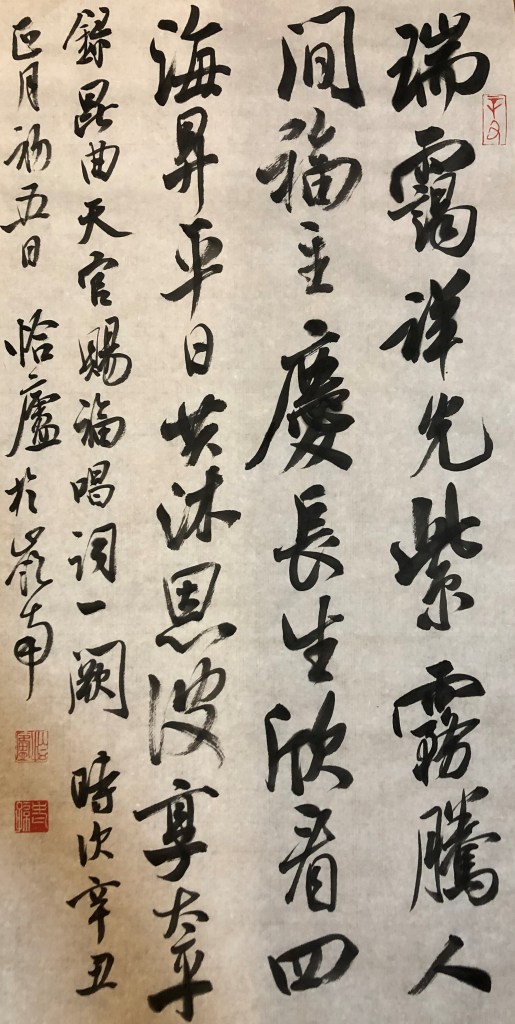 瑞靄祥光紫霧騰人
間福主慶長生欣看四
海昇平日共沐恩波享太平
錄崑曲天官賜福唱詞一闋 時次辛丑
正月初五日 怡廬於嶺南